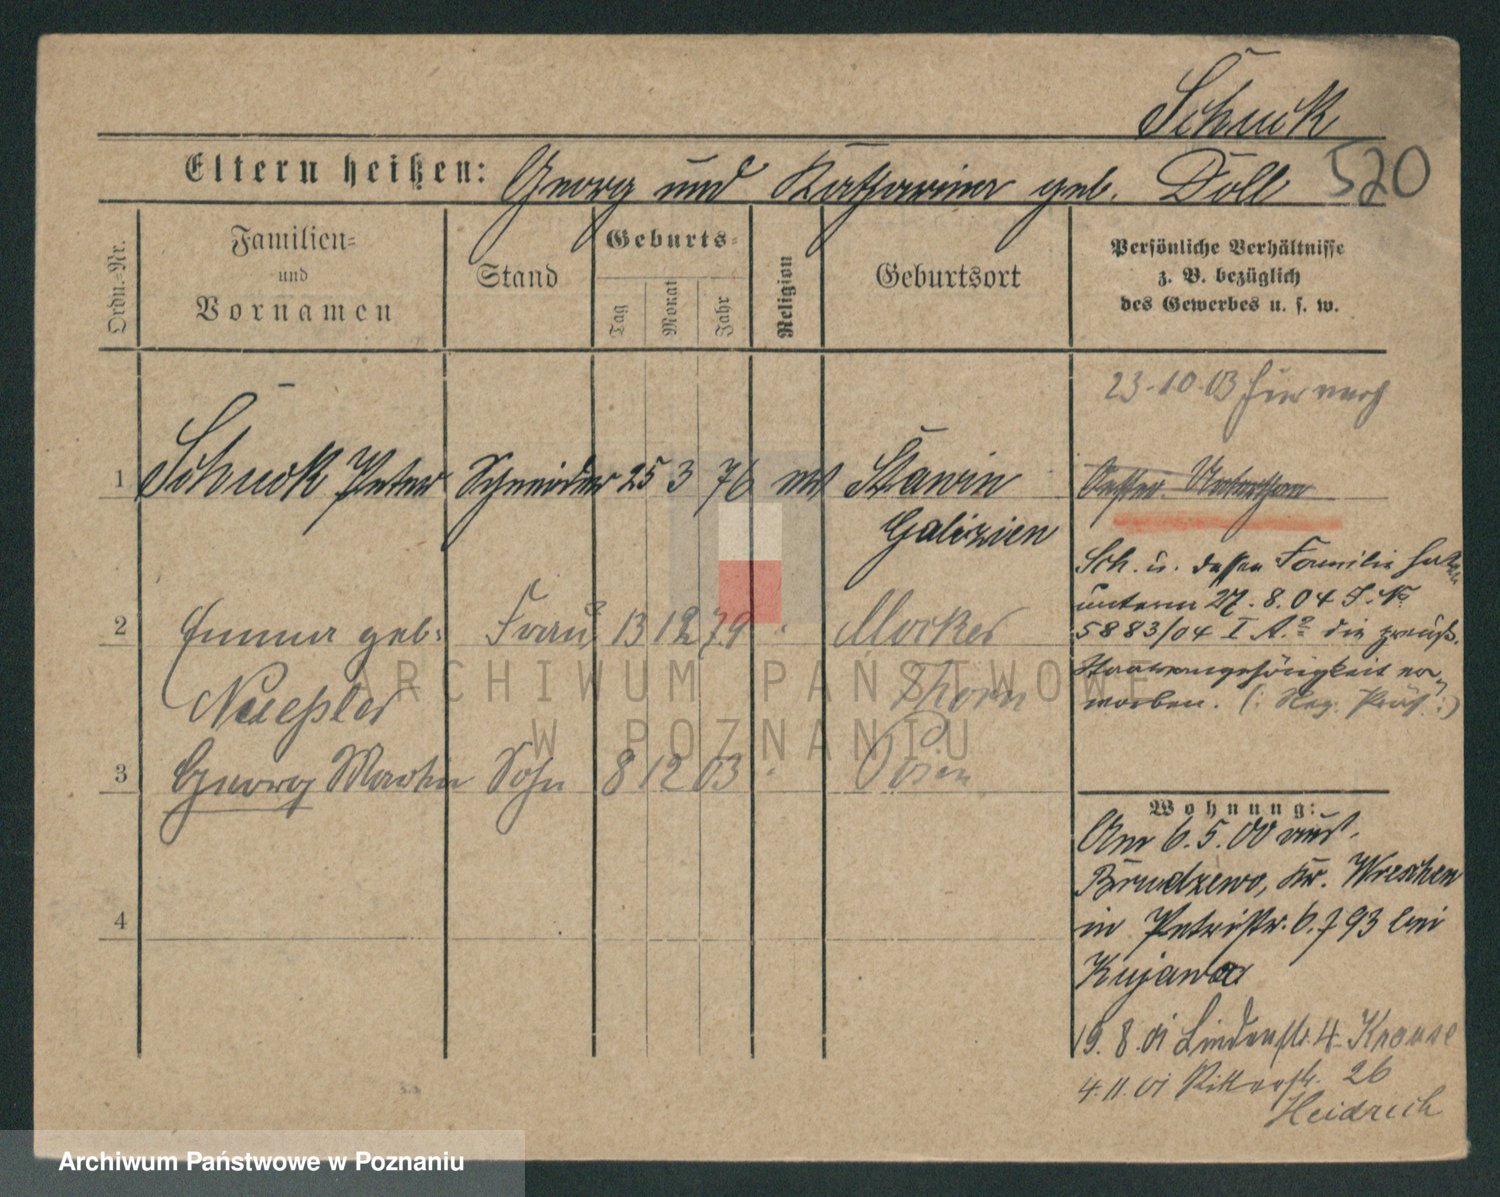 Schuck
Eltern heißen: Georg und Katharina geb. Doll 520
Ordn.-Nr.
Familien-
und
Vornamen
Stand
Geburts-
Tag
Monat
Jahr
Religion
Geburtsort
Persönliche Verhältnisse
z. B. bezüglich
des Gewerbes u. s. w.
23.10.03
1 Schuck Peter Schneider 25 3 76 Stawin
Galizien
Oester. Unterthan
Sch. u. dessen Familie hat
unterm 27.8.04 J. No
5883/04 I A. die preuß.
Staatsangehörigkeit er-
worben. (: Reg. Präs. :)
2 Emma geb: Frau 13 12 79 " Mocker
Thorn
3 Georg Martin Sohn 8 12 03 " Posen
4
Wohnung:
Am 6.5.00 aus
Brudzewo, Kr. Wreschen
in Petristr. 6. 793 bei
Kujawa
19.8.01 Lindenstr. 4 Krause
4.11.01 Ritterstr. 26
Heidrich
ARCHIWUM PAŃSTWOWE
W POZNANIU
Archiwum Państwowe w Poznaniu